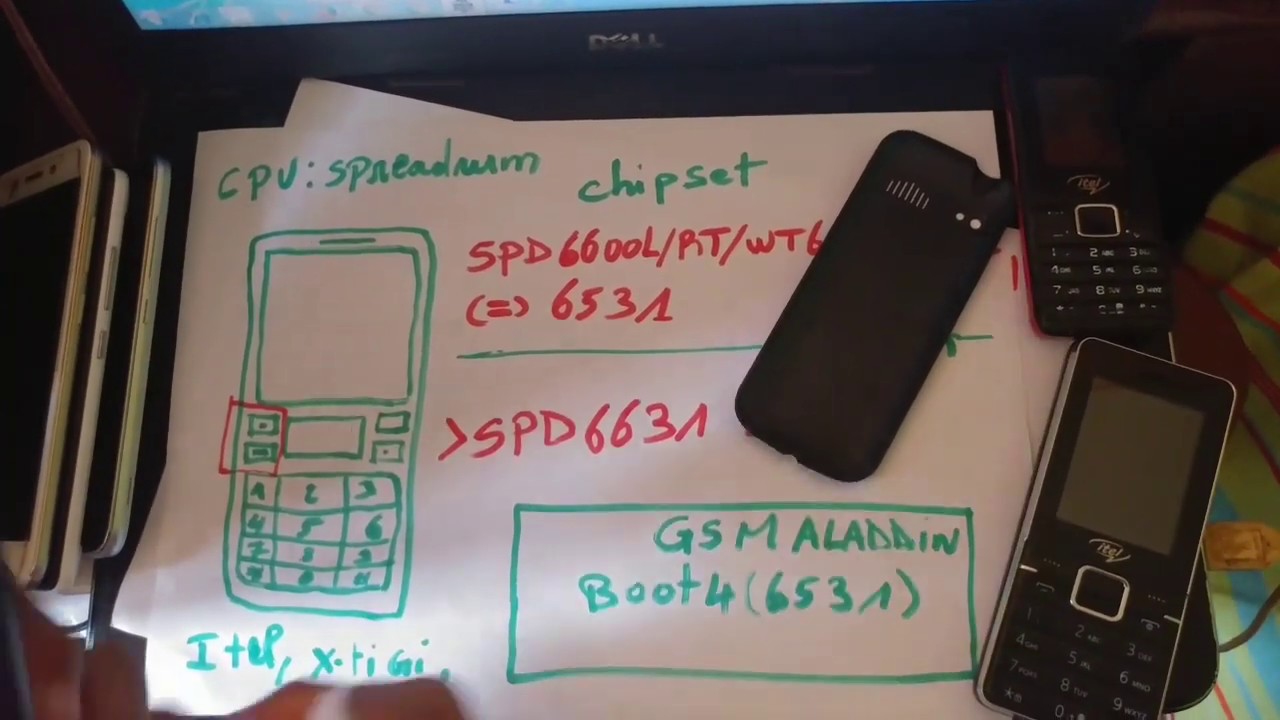 DELL
CPU: Spreadrum
chipset
SPD6600L/RT/WT6
(=> 6531
>SPD6631
GSM ALADDIN
Boot4(6531)
Itel, X-tiGi,
1 2 3
4 5 6
7 8 9
itel
1 2 ABC 3 DEF
4 GHI 5 JKL 6 MNO
7 PQRS 8 TUV 9 WXYZ
itel
1 2 ABC 3 DEF
4 GHI 5 JKL 6 MNO
7 PQRS 8 TUV 9 WXYZ
* 0